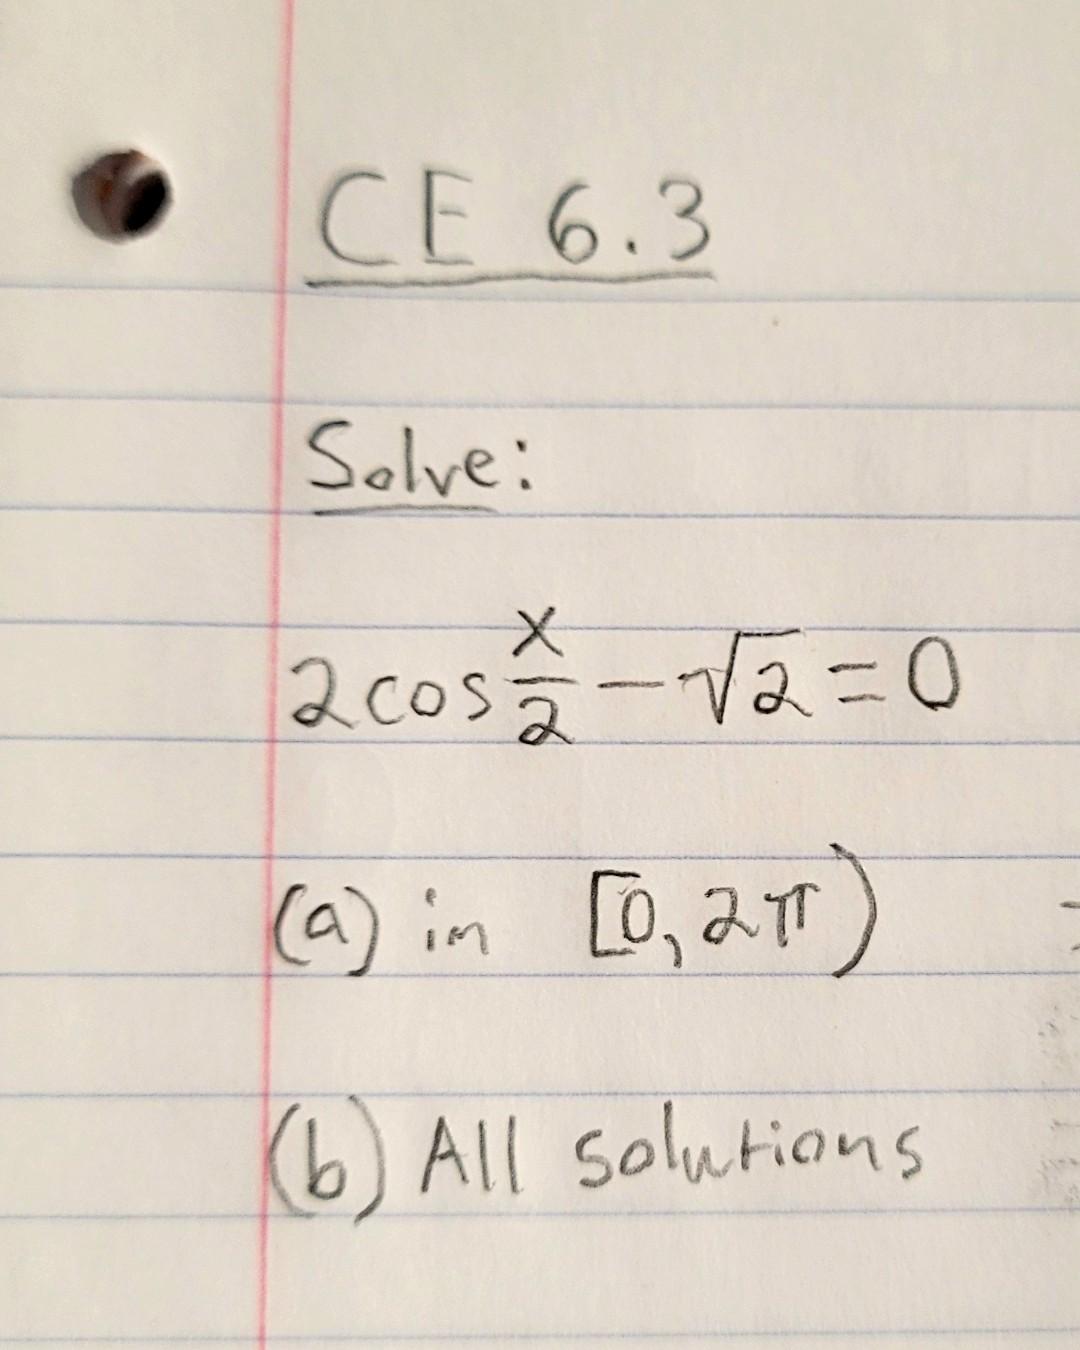 CE 6.3
Solve:
2 cos x/2 - √2 = 0
(a) in [0, 2π)
(b) All solutions